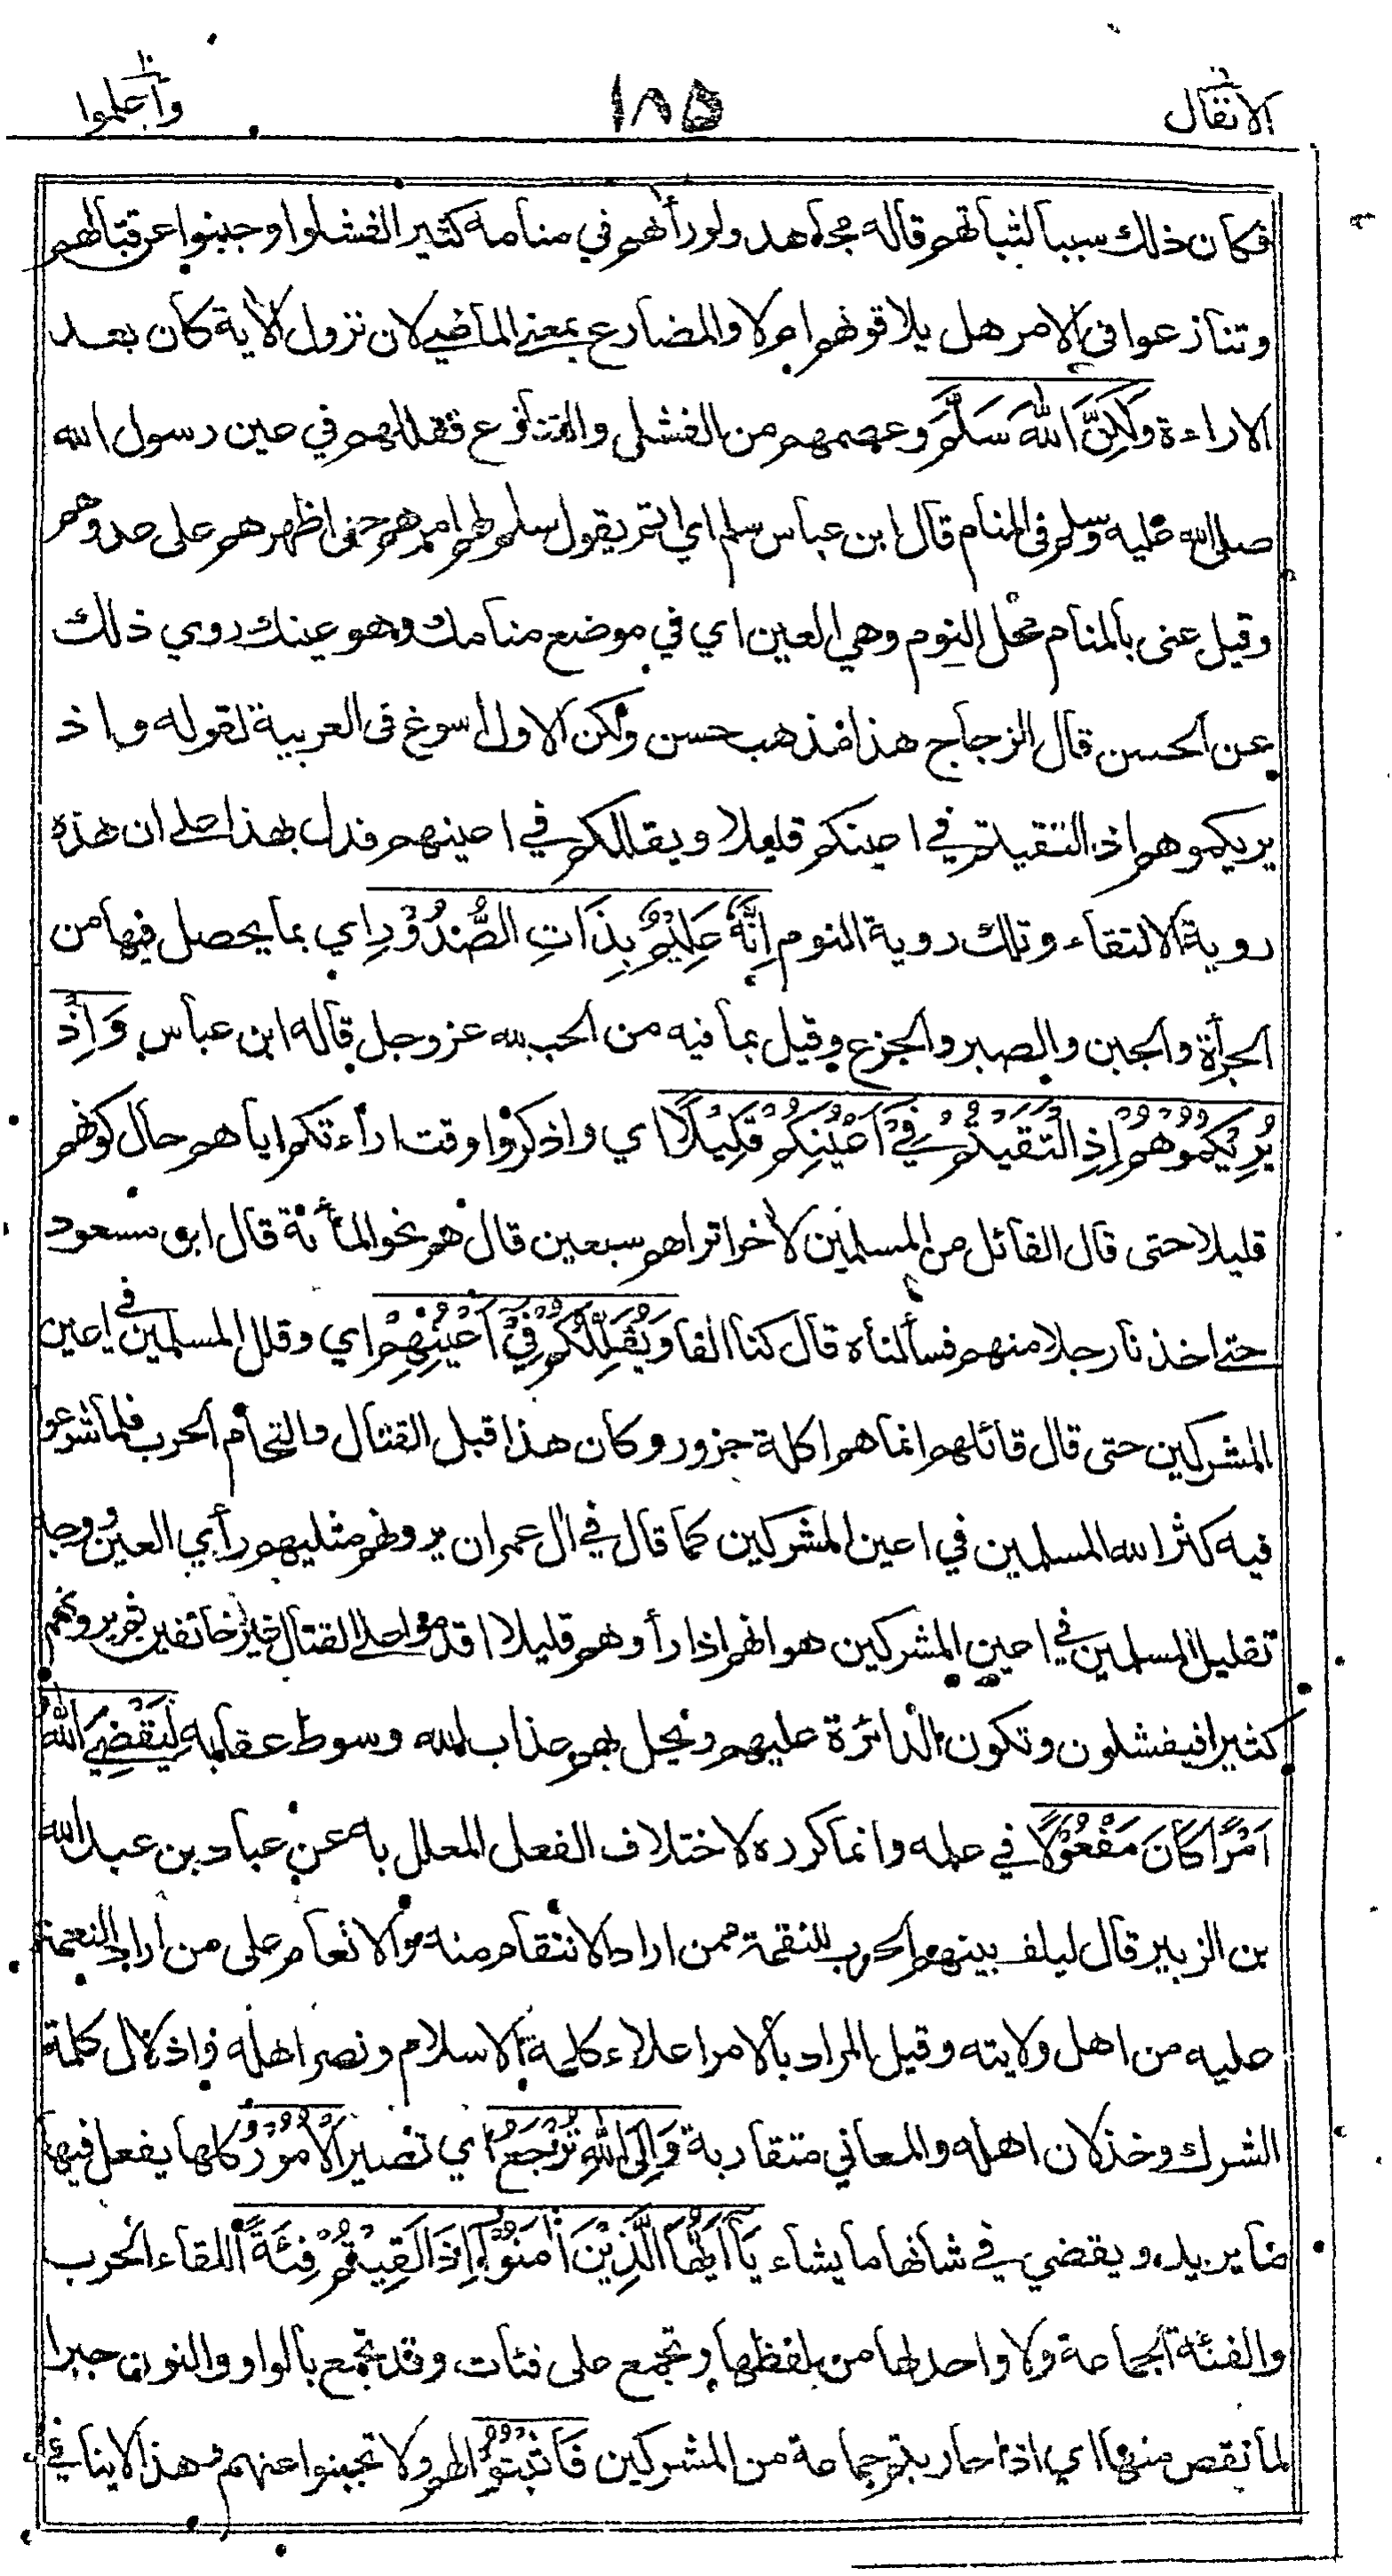 الانفال ١٨٥ واعلموا
فكان ذلك سببا لثباتهم قاله مجاهد ولو رأهم في منامه كثيرا لفشلوا وجبنوا عن قتالهم
وتنازعوا في الامر هل يلاقونهم ام لا والمضارع بمعنى الماضي لان نزول الأية كان بعد
الاراءة وَلَكِنَّ اللّٰهَ سَلَّمَ وعصمهم من الفشل والتنازع فقللهم في عين رسول الله
صلى الله عليه وسلم في المنام قال ابن عباس سلم اي اتم يقول سلم لهم امرهم حتى اظهرهم على عدوهم
وقيل عنى بالمنام محل النوم وهي العين اي في موضع منامك وهو عينك روي ذلك
عن الحسن قال الزجاج هذا مذهب حسن ولكن الاول اسوغ في العربية لقوله واذ
يريكموهم اذ التقيتم في اعينكم قليلا ويقللكم في اعينهم فدل بهذا على ان هذه
روية الالتقاء وتلك روية النوم اِنَّهٗ عَلِيْمٌۢ بِذَاتِ الصُّدُوْرِ اي بما يحصل فيها من
الجرأة والجبن والصبر والجزع وقيل بما فيه من الحب لله عز وجل قاله ابن عباس وَاِذْ
يُرِيْكُمُوْهُمْ اِذِ الْتَقَيْتُمْ فِيْٓ اَعْيُنِكُمْ قَلِيْلًا اي واذكروا وقت اراءتكم اياهم حال كونهم
قليلا حتى قال القائل من المسلمين لأخر اتراهم سبعين قال هم نحو المأئة قال ابن مسعود
حتى اخذنا رجلا منهم فسألناه قال كنا الفا وَيُقَلِّلُكُمْ فِيْٓ اَعْيُنِهِمْ اي وقلل المسلمين في اعين
المشركين حتى قال قائلهم انما هم اكلة جزور وكان هذا قبل القتال والتحام الحرب فلما شرعوا
فيه كثر الله المسلمين في اعين المشركين كما قال في أل عمران يرونهم مثليهم رأي العين ووجه
تقليل المسلمين في اعين المشركين هو انهم اذا رأوهم قليلا اقدموا على القتال غير خائفين ثم يرونهم
كثيرا فيفشلون وتكون الدائرة عليهم ويحل بهم عذاب الله وسوط عقابه لِيَقْضِيَ اللّٰهُ
اَمْرًا كَانَ مَفْعُوْلًا في علمه وانما كرره لاختلاف الفعل المعلل به عن عباد بن عبد الله
بن الزبير قال ليلف بينهم الحرب للنقمة ممن اراد الانتقام منه والانعام على من اراد النعمة
عليه من اهل ولايته وقيل المراد بالامر اعلاء كلمة الاسلام ونصر اهله واذلال كلمة
الشرك وخذلان اهله والمعاني متقاربة وَاِلَى اللّٰهِ تُرْجَعُ اي تصير الْاُمُوْرُ كلها يفعل فيها
ما يريد ويقضي في شانها ما يشاء يٰٓاَيُّهَا الَّذِيْنَ اٰمَنُوْٓا اِذَا لَقِيْتُمْ فِئَةً اللقاء الحرب
والفئة الجماعة ولا واحد لها من لفظها وتجمع على فئات وقد تجمع بالواو والنون جبرا
لما نقص منها اي اذا حاربتم جماعة من المشركين فَاثْبُتُوْا لهم ولا تجبنوا عنهم وهذا لا ينافي